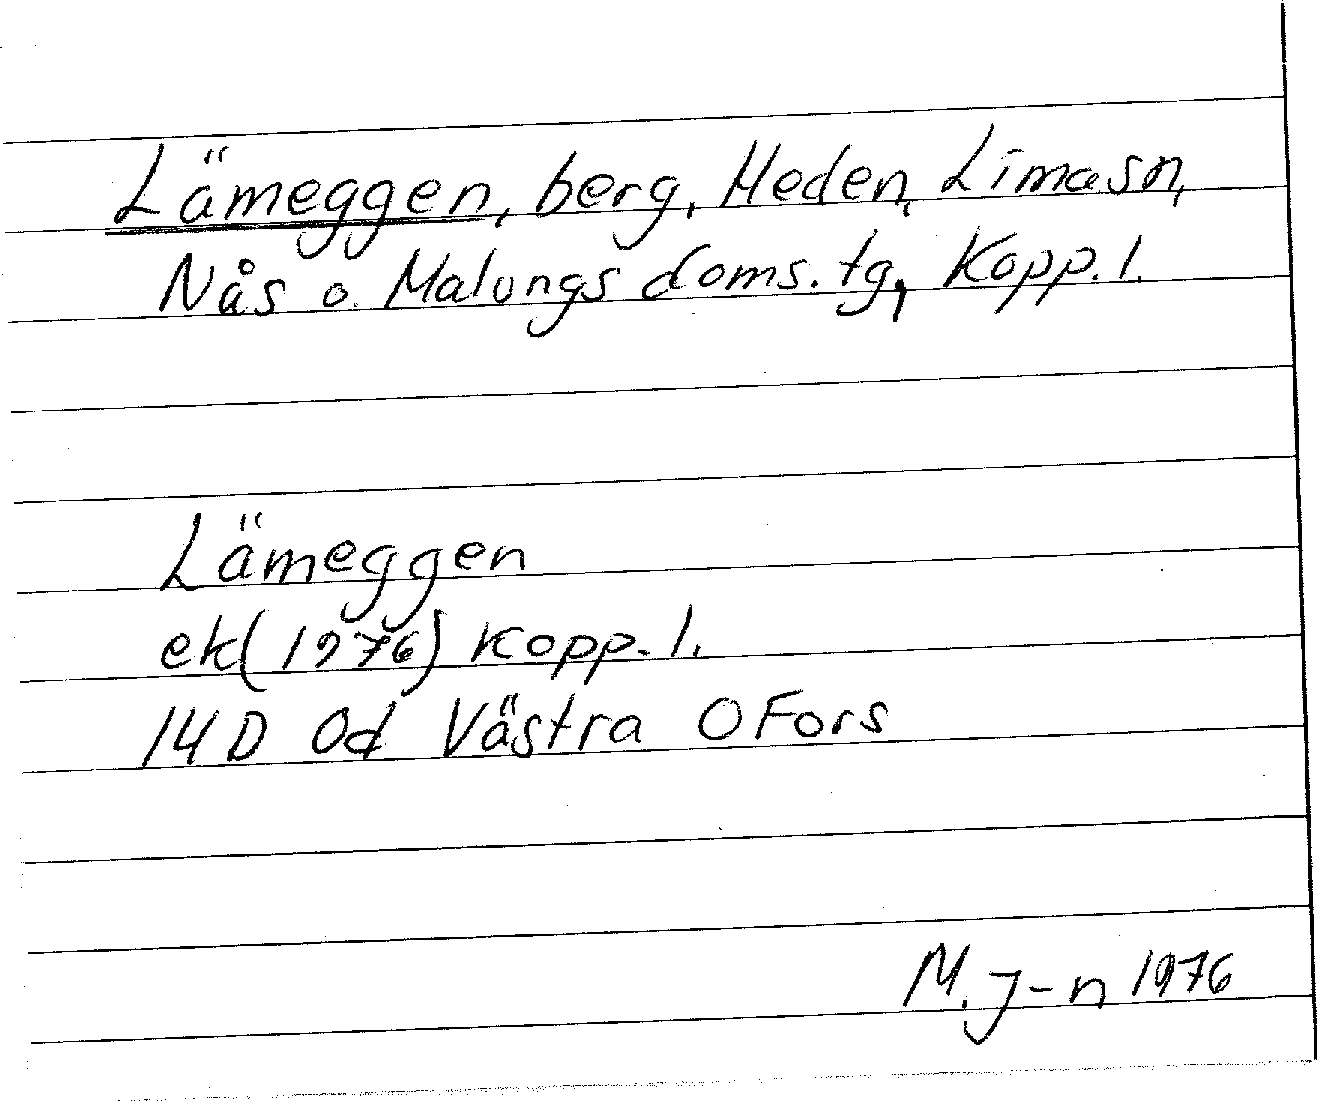 Lämeggen, berg, Heden, Lima sn,
Nås o. Malungs doms. tg, Kopp. l.
Lämeggen
ek (1976) Kopp. l.
14 D 0d Västra OFors
M. J-n 1976